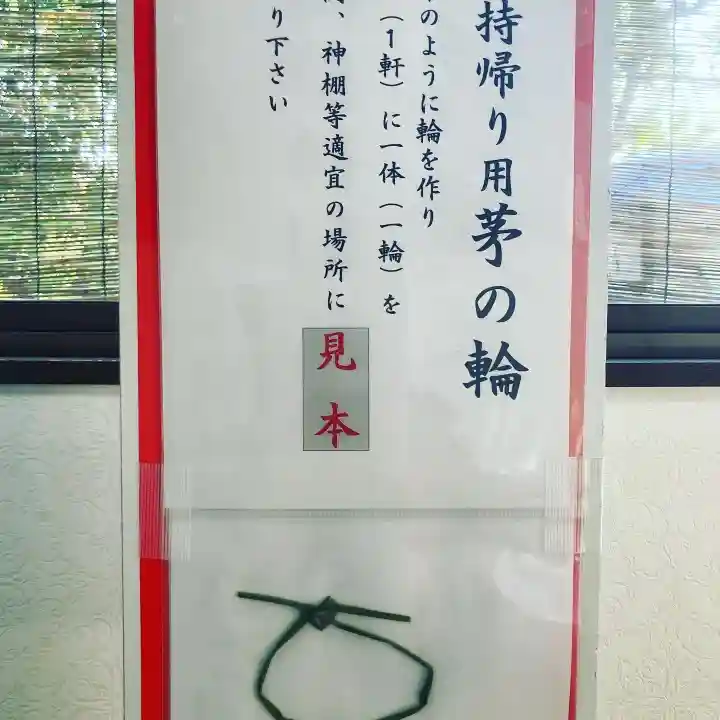 持帰り用茅の輪
のように輪を作り
(1軒)に一体(一輪)を
、神棚等適宜の場所に
り下さい
見本